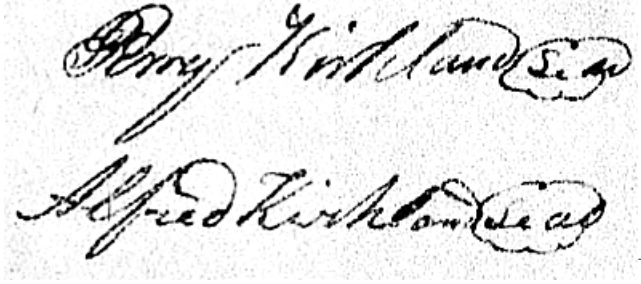 Perry Kirkland Seal
Alfred Kirkland Seal